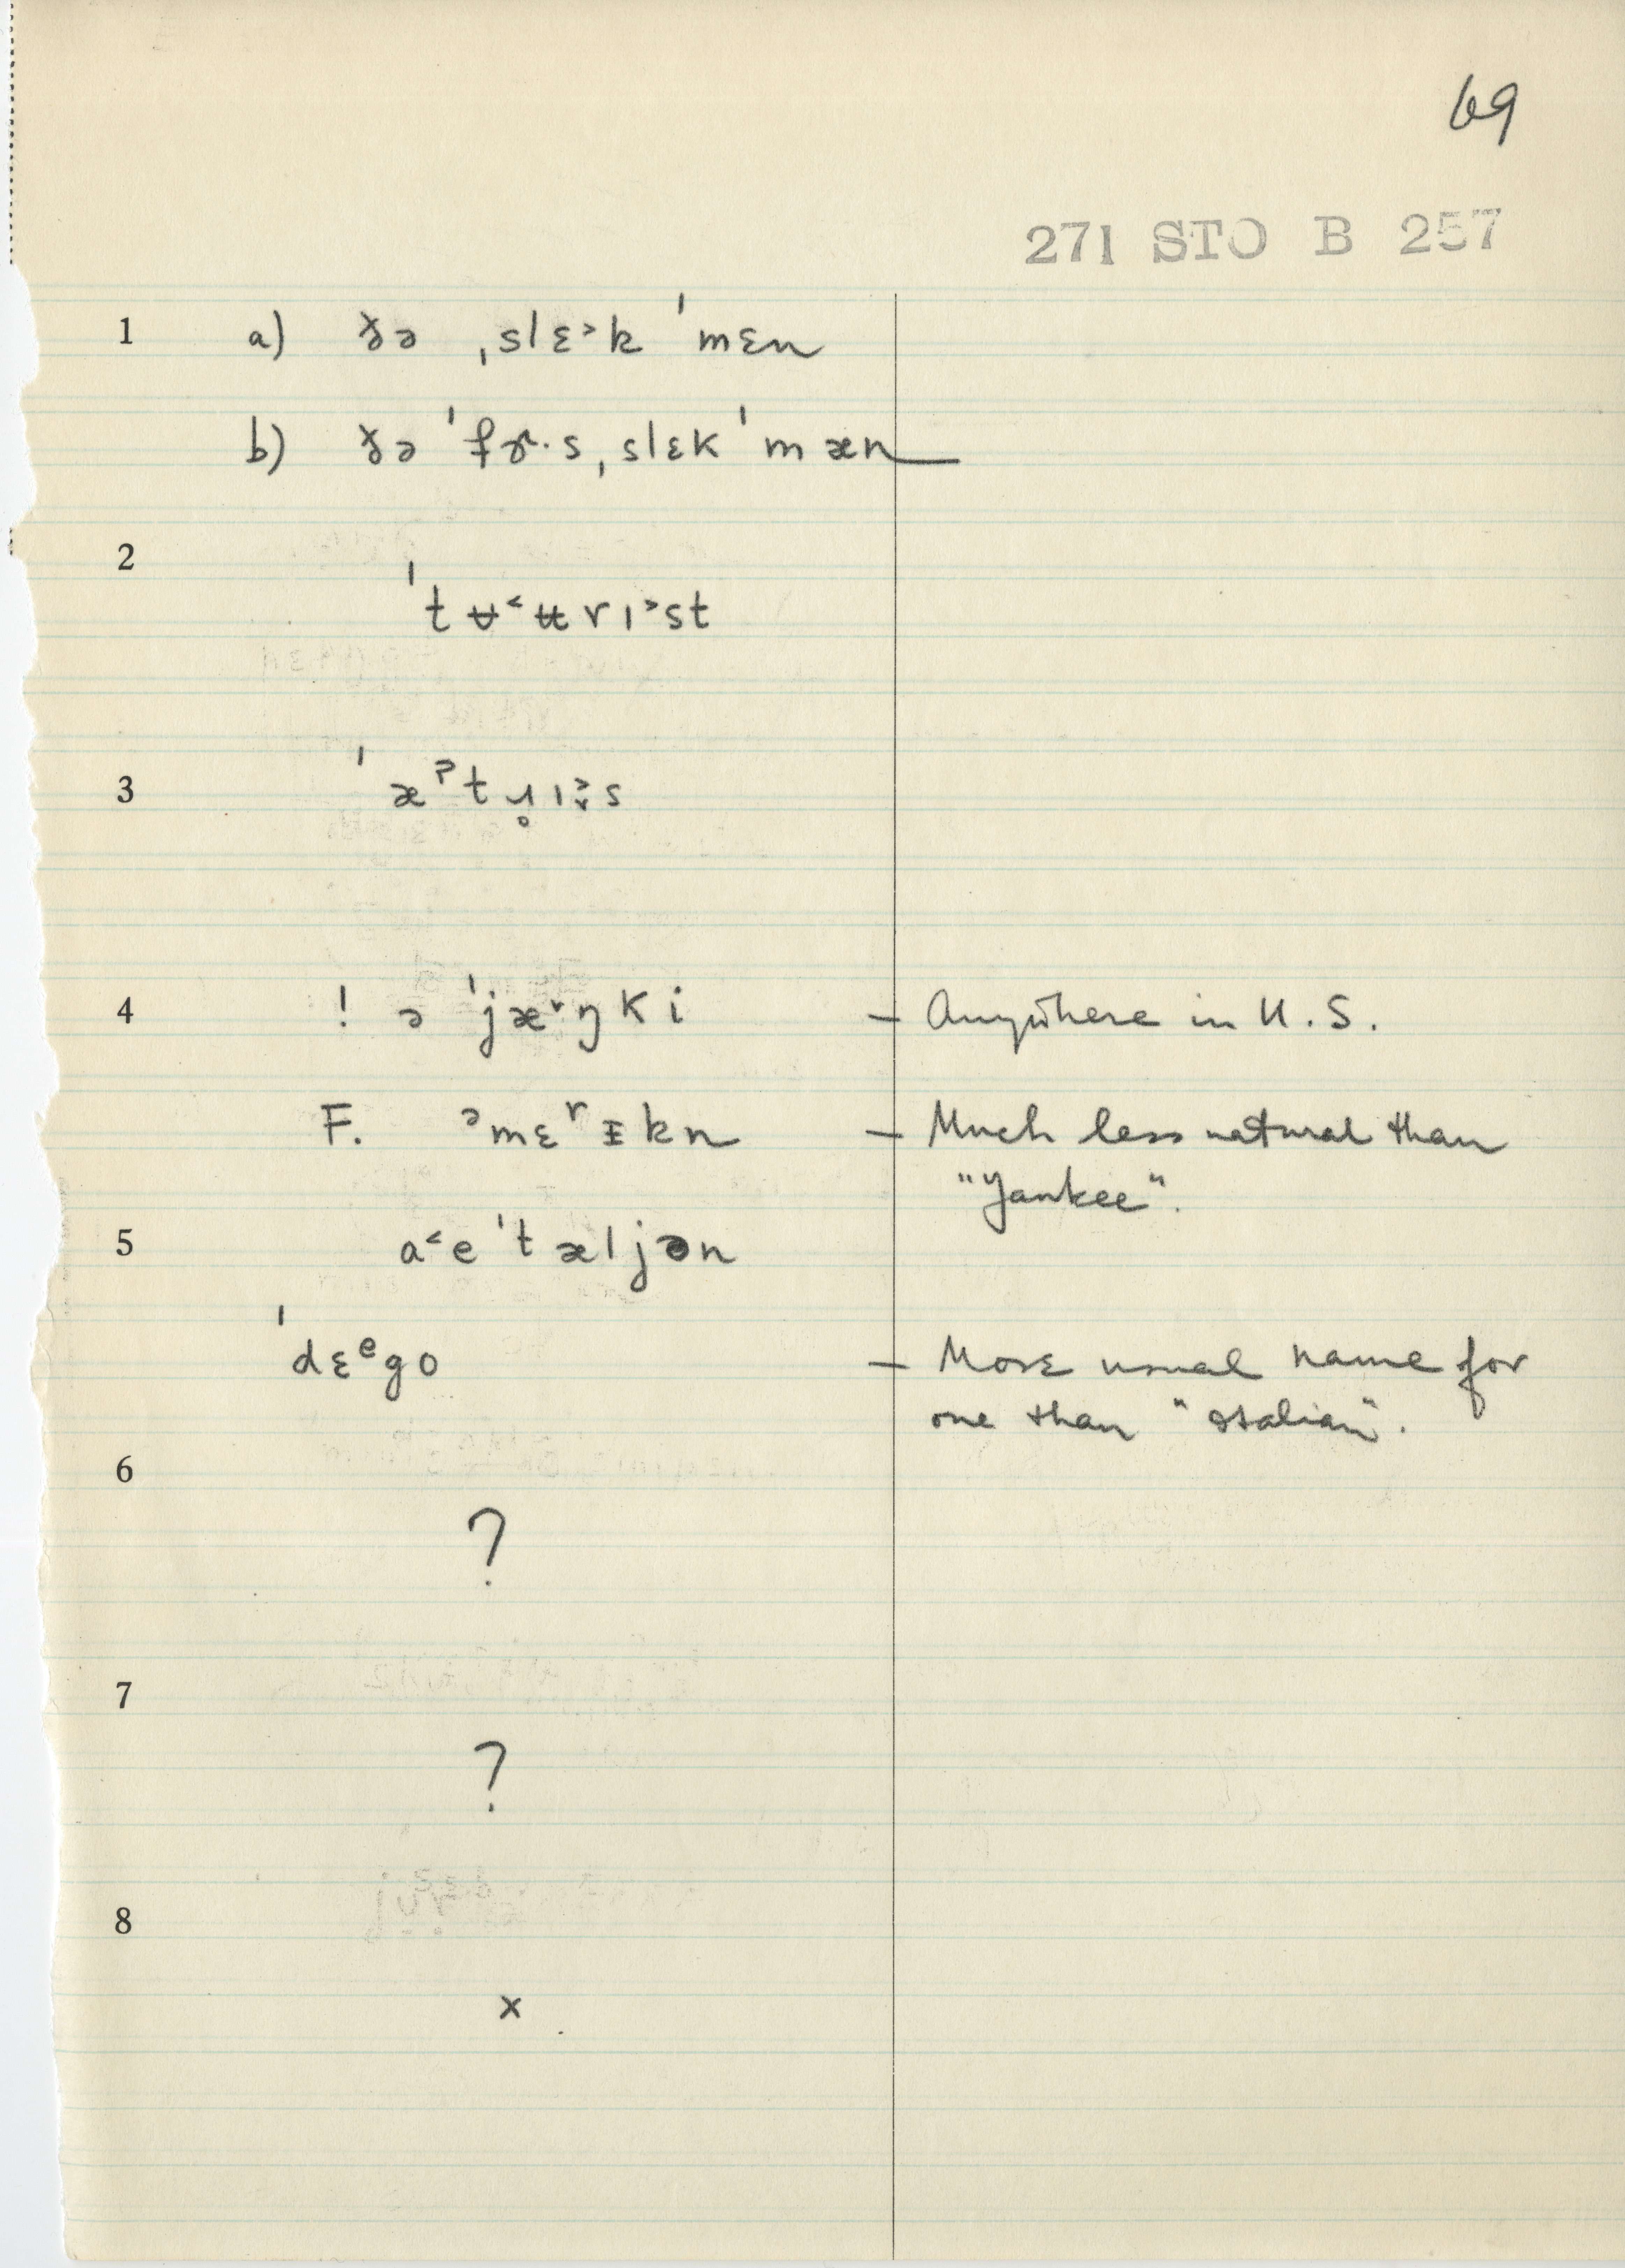 69
271 STO B 257
1 a) ðə ˌslɛ˃k ˈmɛn
b) ðə ˈfɝ·s ˌslɛk ˈmæn
2
ˈtʉ˂ʉrɪ˃st
3 ˈæᵊtɹ̥ɪ˃s
4 ! ə ˈjæ˅ŋki – Anywhere in U.S.
F. ᵊmɛʳɪkn – Much less natural than
"Yankee".
5 a˂eˈtæljən
ˈdɛᵉgo – More usual name for
one than "Italian".
6
?
7
?
8
x